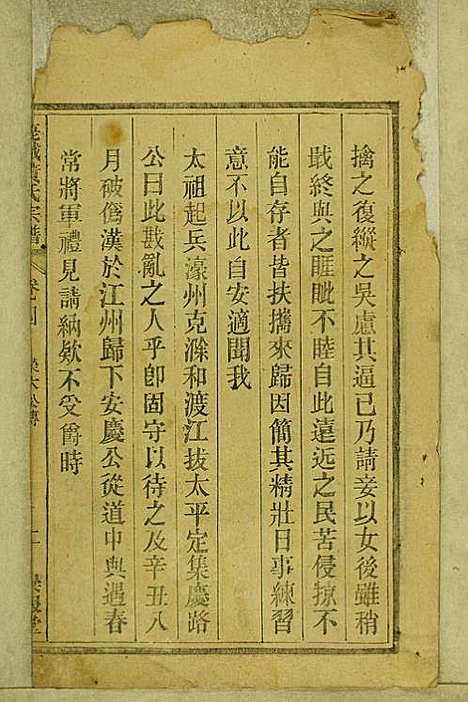 擒之復縱之吳慮其逼己乃請妾以女後雖稍
戢終與之睚眦不睦自此遠近之民苦侵掠不
能自存者皆扶攜來歸因簡其精壯日事練習
意不以此自安適聞我
太祖起兵濠州克滁和渡江拔太平定集慶路
公曰此戡亂之人乎卽固守以待之及辛丑八
月破僞漢於江州歸下安慶公從道中與遇春
常將軍禮見請納欵不受爵時
氏宗譜 卷 四 公傳